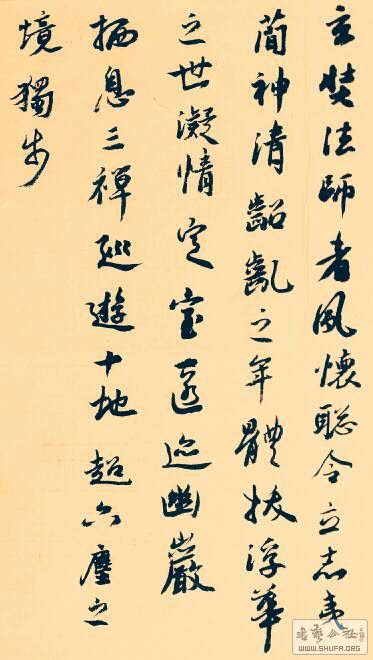 玄奘法師者夙懷聡令立志夷
簡神清齠齔之年體拔浮華
之世凝情定室匿迹幽巖
栖息三禪巡遊十地超六塵之
境獨步
書藝公社
WWW.SHUFA.ORG